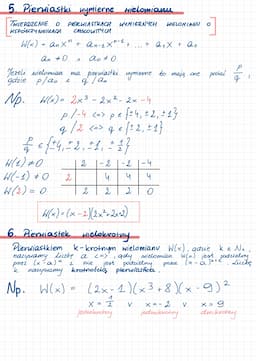 5. Pierwiastki wymierne wielomianu
TWIERDZENIE O PIERWIASTKACH WYMIERNYCH WIELOMIANU O
WSPÓŁCZYNNIKACH CAŁKOWITYCH
W(x) = aₙxⁿ + aₙ₋₁xⁿ⁻¹ + ... + a₁x + a₀
aₙ ≠ 0 ∧ a₀ ≠ 0
Jeżeli wielomian ma pierwiastki wymierne to mają one postać p/q,
gdzie p/a₀ i q/aₙ
Np. W(x) = 2x³ - 2x² - 2x - 4
p/-4 <=> p ∈ {±4, ±2, ±1}
q/2 <=> q ∈ {±2, ±1}
p/q ∈ {±4, ±2, ±1, ±1/2}
W(1) ≠ 0 2 -2 -2 -4
W(-1) ≠ 0 2 4 4 4
W(2) = 0 2 2 2 0
W(x) = (x - 2)(2x² + 2x + 2)
6. Pierwiastek wielokrotny
Pierwiastkiem k-krotnym wielomianu W(x), gdzie k ∈ N₊,
nazywamy liczbę a <=>, gdy wielomian W(x) jest podzielny
przez (x-a)ᵏ i nie jest podzielny przez (x-a)ᵏ⁺¹. Liczbę
k nazywamy krotnością pierwiastka.
Np. W(x) = (2x - 1)(x³ + 8)(x - 9)²
x = 1/2 v x = -2 v x = 9
jednokrotny jednokrotny dwukrotny